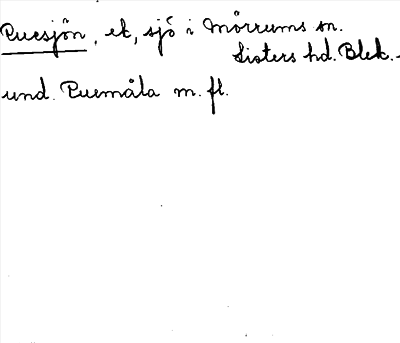 Puesjön, ek, sjö i Mörrums sn.
Listers hd. Blek.
und. Puemåla m. fl.